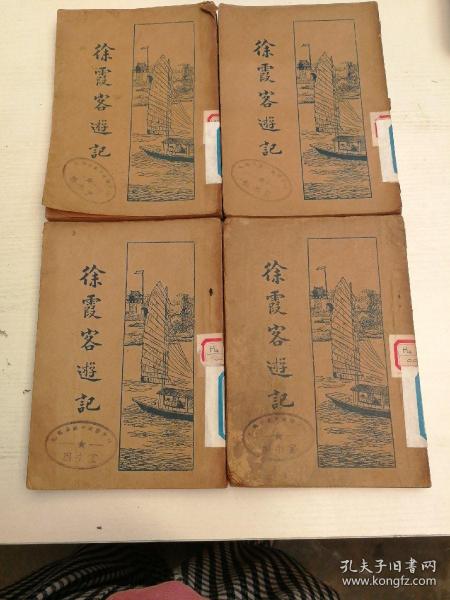 徐霞客遊記
徐霞客遊記
徐霞客遊記
徐霞客遊記
孔夫子旧书网
www.kongfz.com